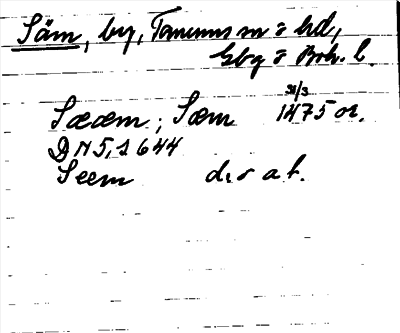 Säm, by, Tanums sn o hd,
Gbg o Boh. l.
Sææm; Sæm 31/3 1475 or.
DN 5, s 644
Seem d:o a t.